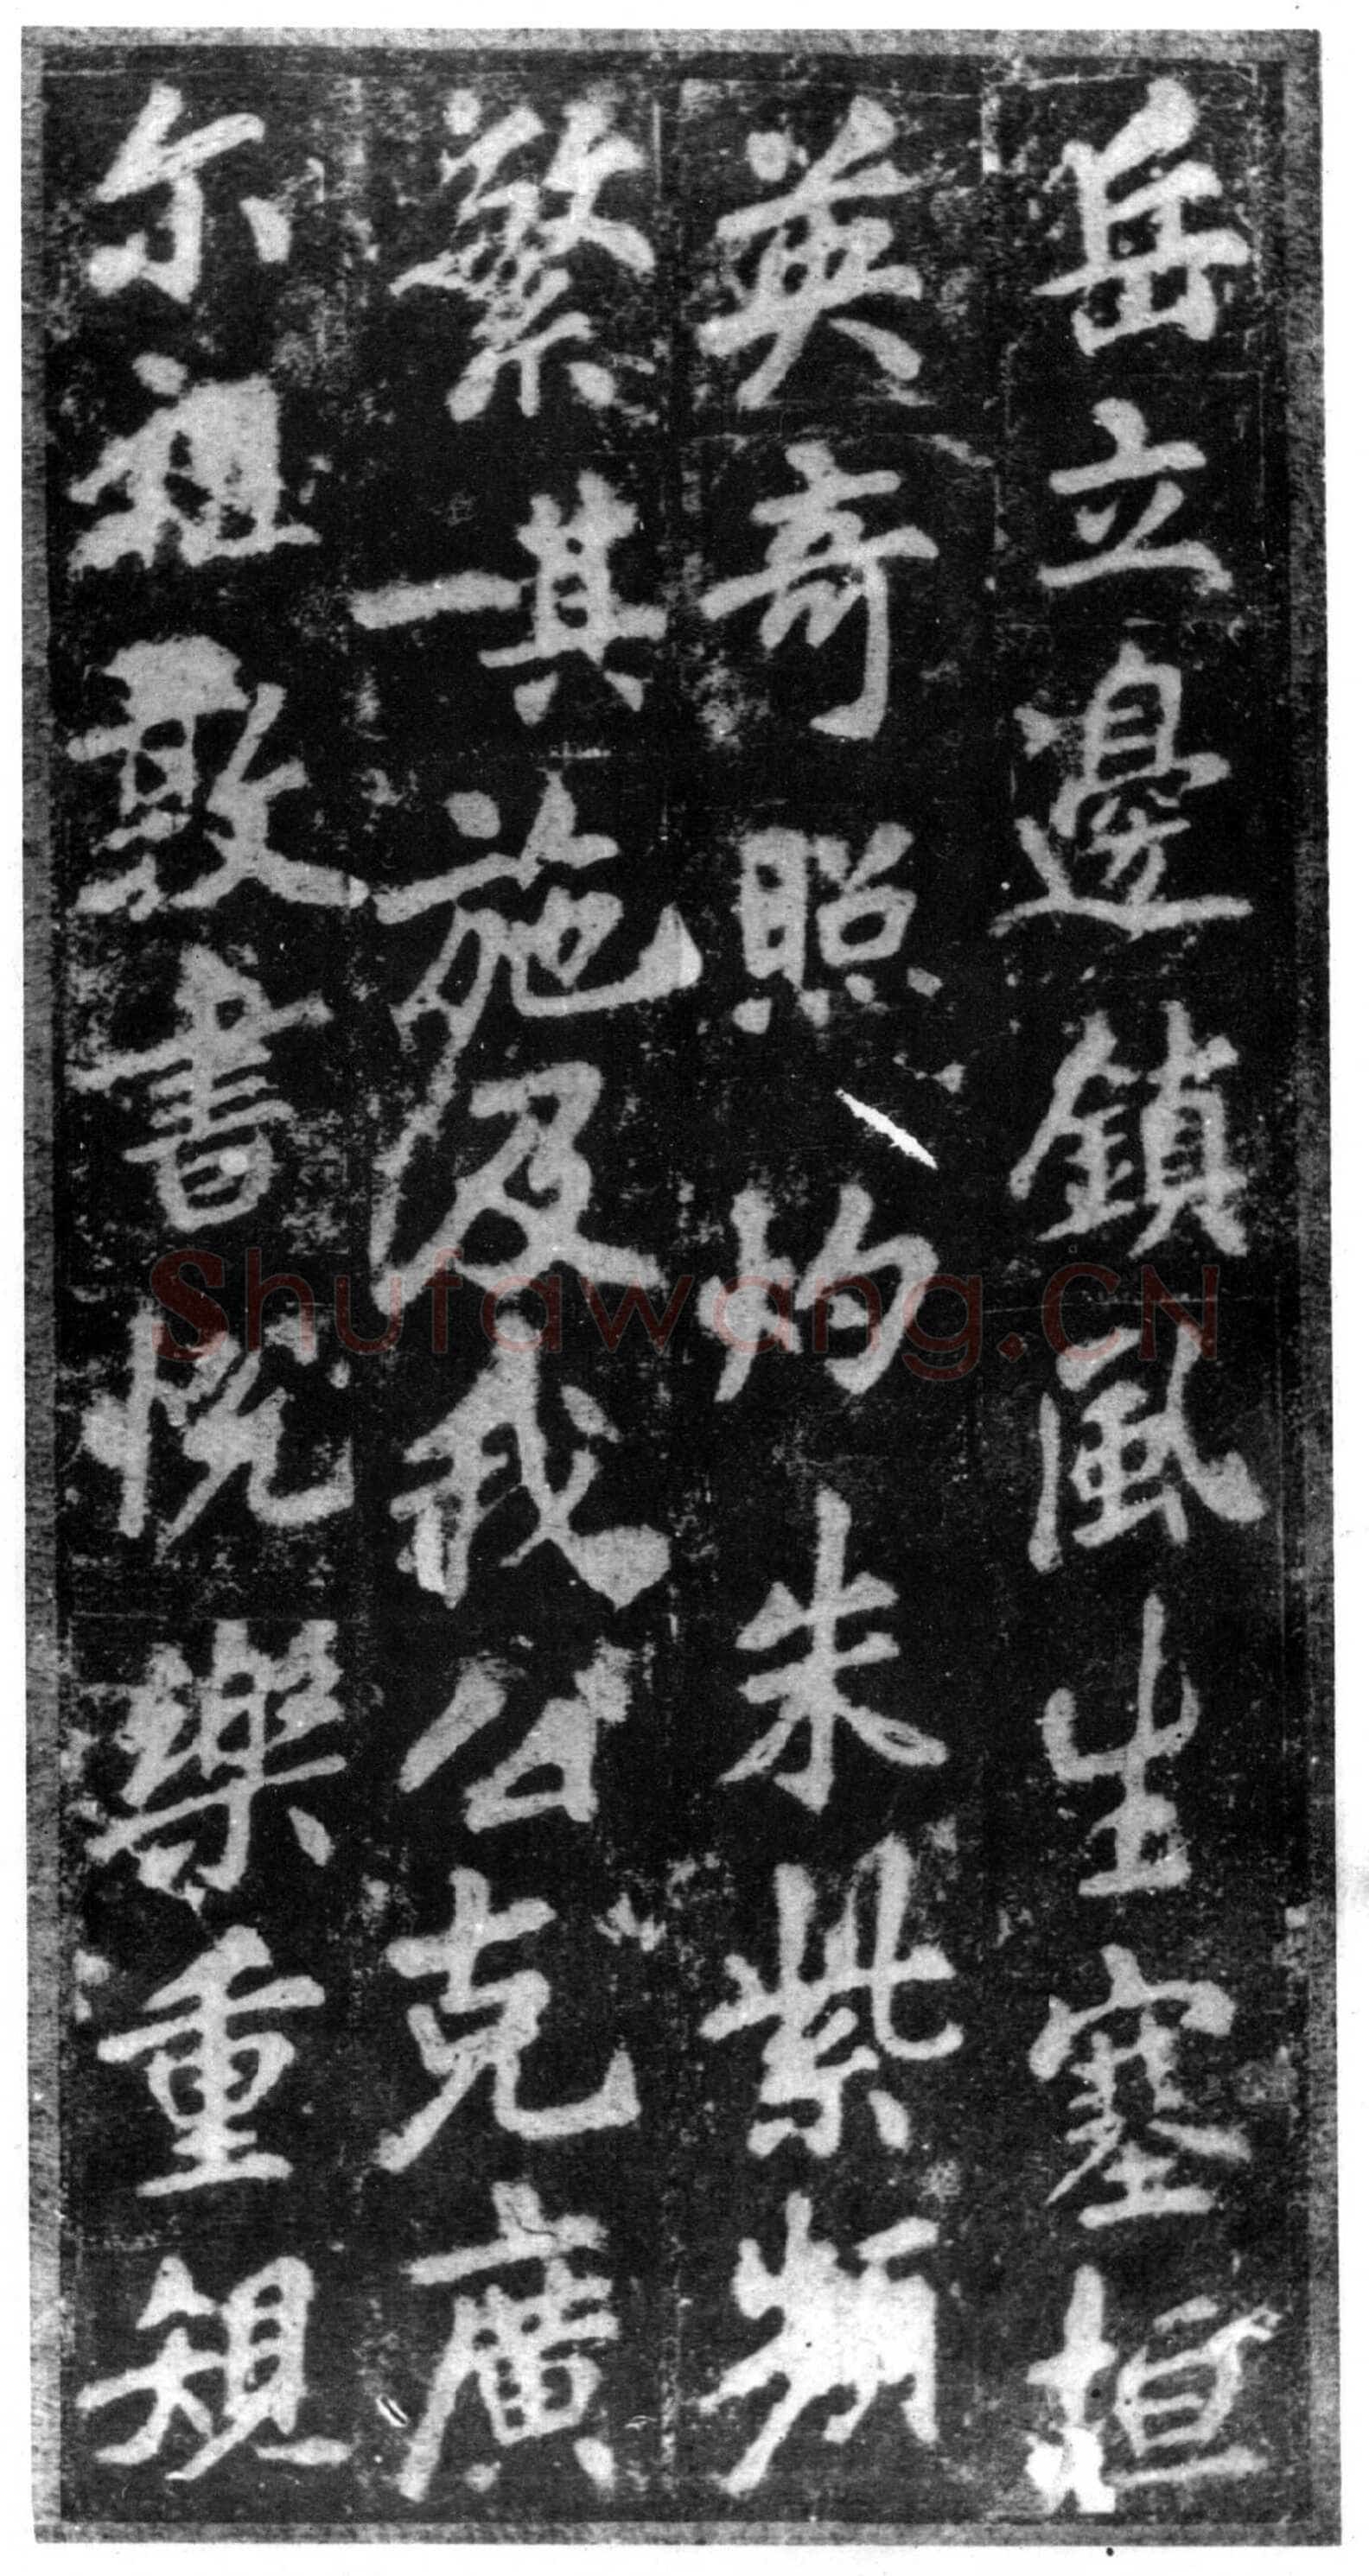 岳立邊鎮風生塞垣
英奇照灼朱紫頻
繁一其施及我公克廣
尓祖敦書悦樂重規
Shufawang.CN